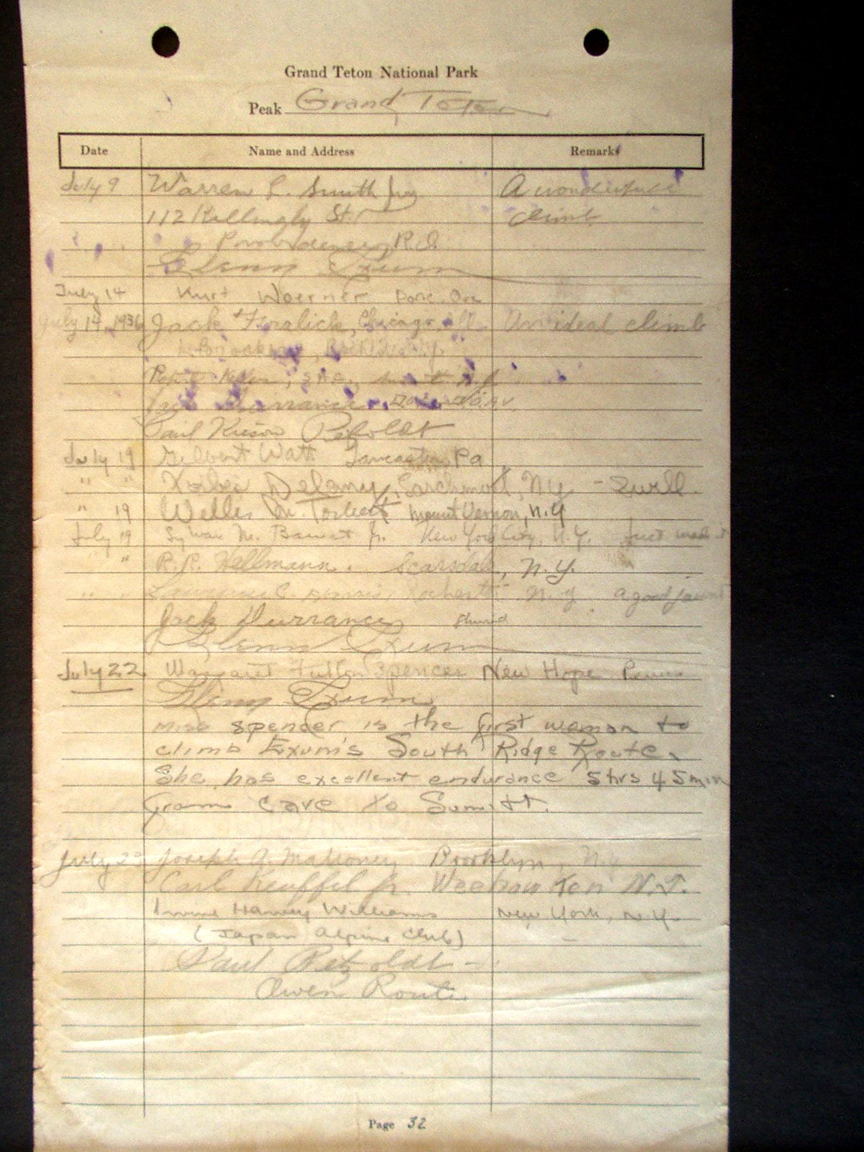 Grand Teton National Park
Peak Grand Teton
Date Name and Address Remarks
July 9 Warren L. Smith Jr. A wonderful
112 Killingly St. climb
Providence, R.I.
Glenn Exum
July 14 Kurt Woerner
July 14, 1936 Jack Chicago, Ill. An ideal climb
Jack Durrance
Paul Petzoldt
July 19 Gilbert Watt Lancaster, Pa
" " Delany, Larchmont, N.Y. - Swell.
" 19 Welles M. Torbert Mount Vernon, N.Y
July 19 M. Jr. New York City, N.Y. Just made it
" R.R. Hellmann. Scarsdale, N.Y.
" " Lawrence C. Rochester N.Y. a good jaunt
Jack Durrance
Glenn Exum
July 22 Margaret Fulton Spencer New Hope Penna
Glenn Exum
Miss Spencer is the first woman to
climb Exum's South Ridge Route.
She has excellent endurance 5 hrs 45 min
from cave to Sumitt.
July Joseph A. Mahoney Brooklyn, N.Y.
Carl Keuffel Jr. Weehawken N.J.
Harvey Williams New York, N.Y.
(Japan Alpine Club) -
Paul Petzoldt -
Owen Route
Page 32